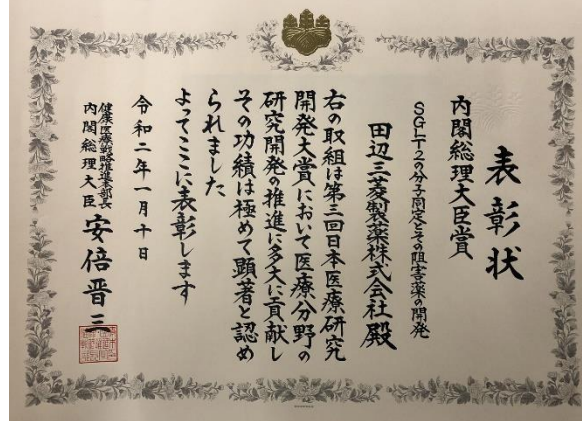 表彰状
内閣総理大臣賞
SGLT2の分子同定とその阻害薬の開発
田辺三菱製薬株式会社殿
右の取組は第三回日本医療研究
開発大賞において医療分野の
研究開発の推進に多大に貢献し
その功績は極めて顕著と認め
られました
よってここに表彰します
令和二年一月十日
健康医療戦略推進本部長
内閣総理大臣 安倍晋三